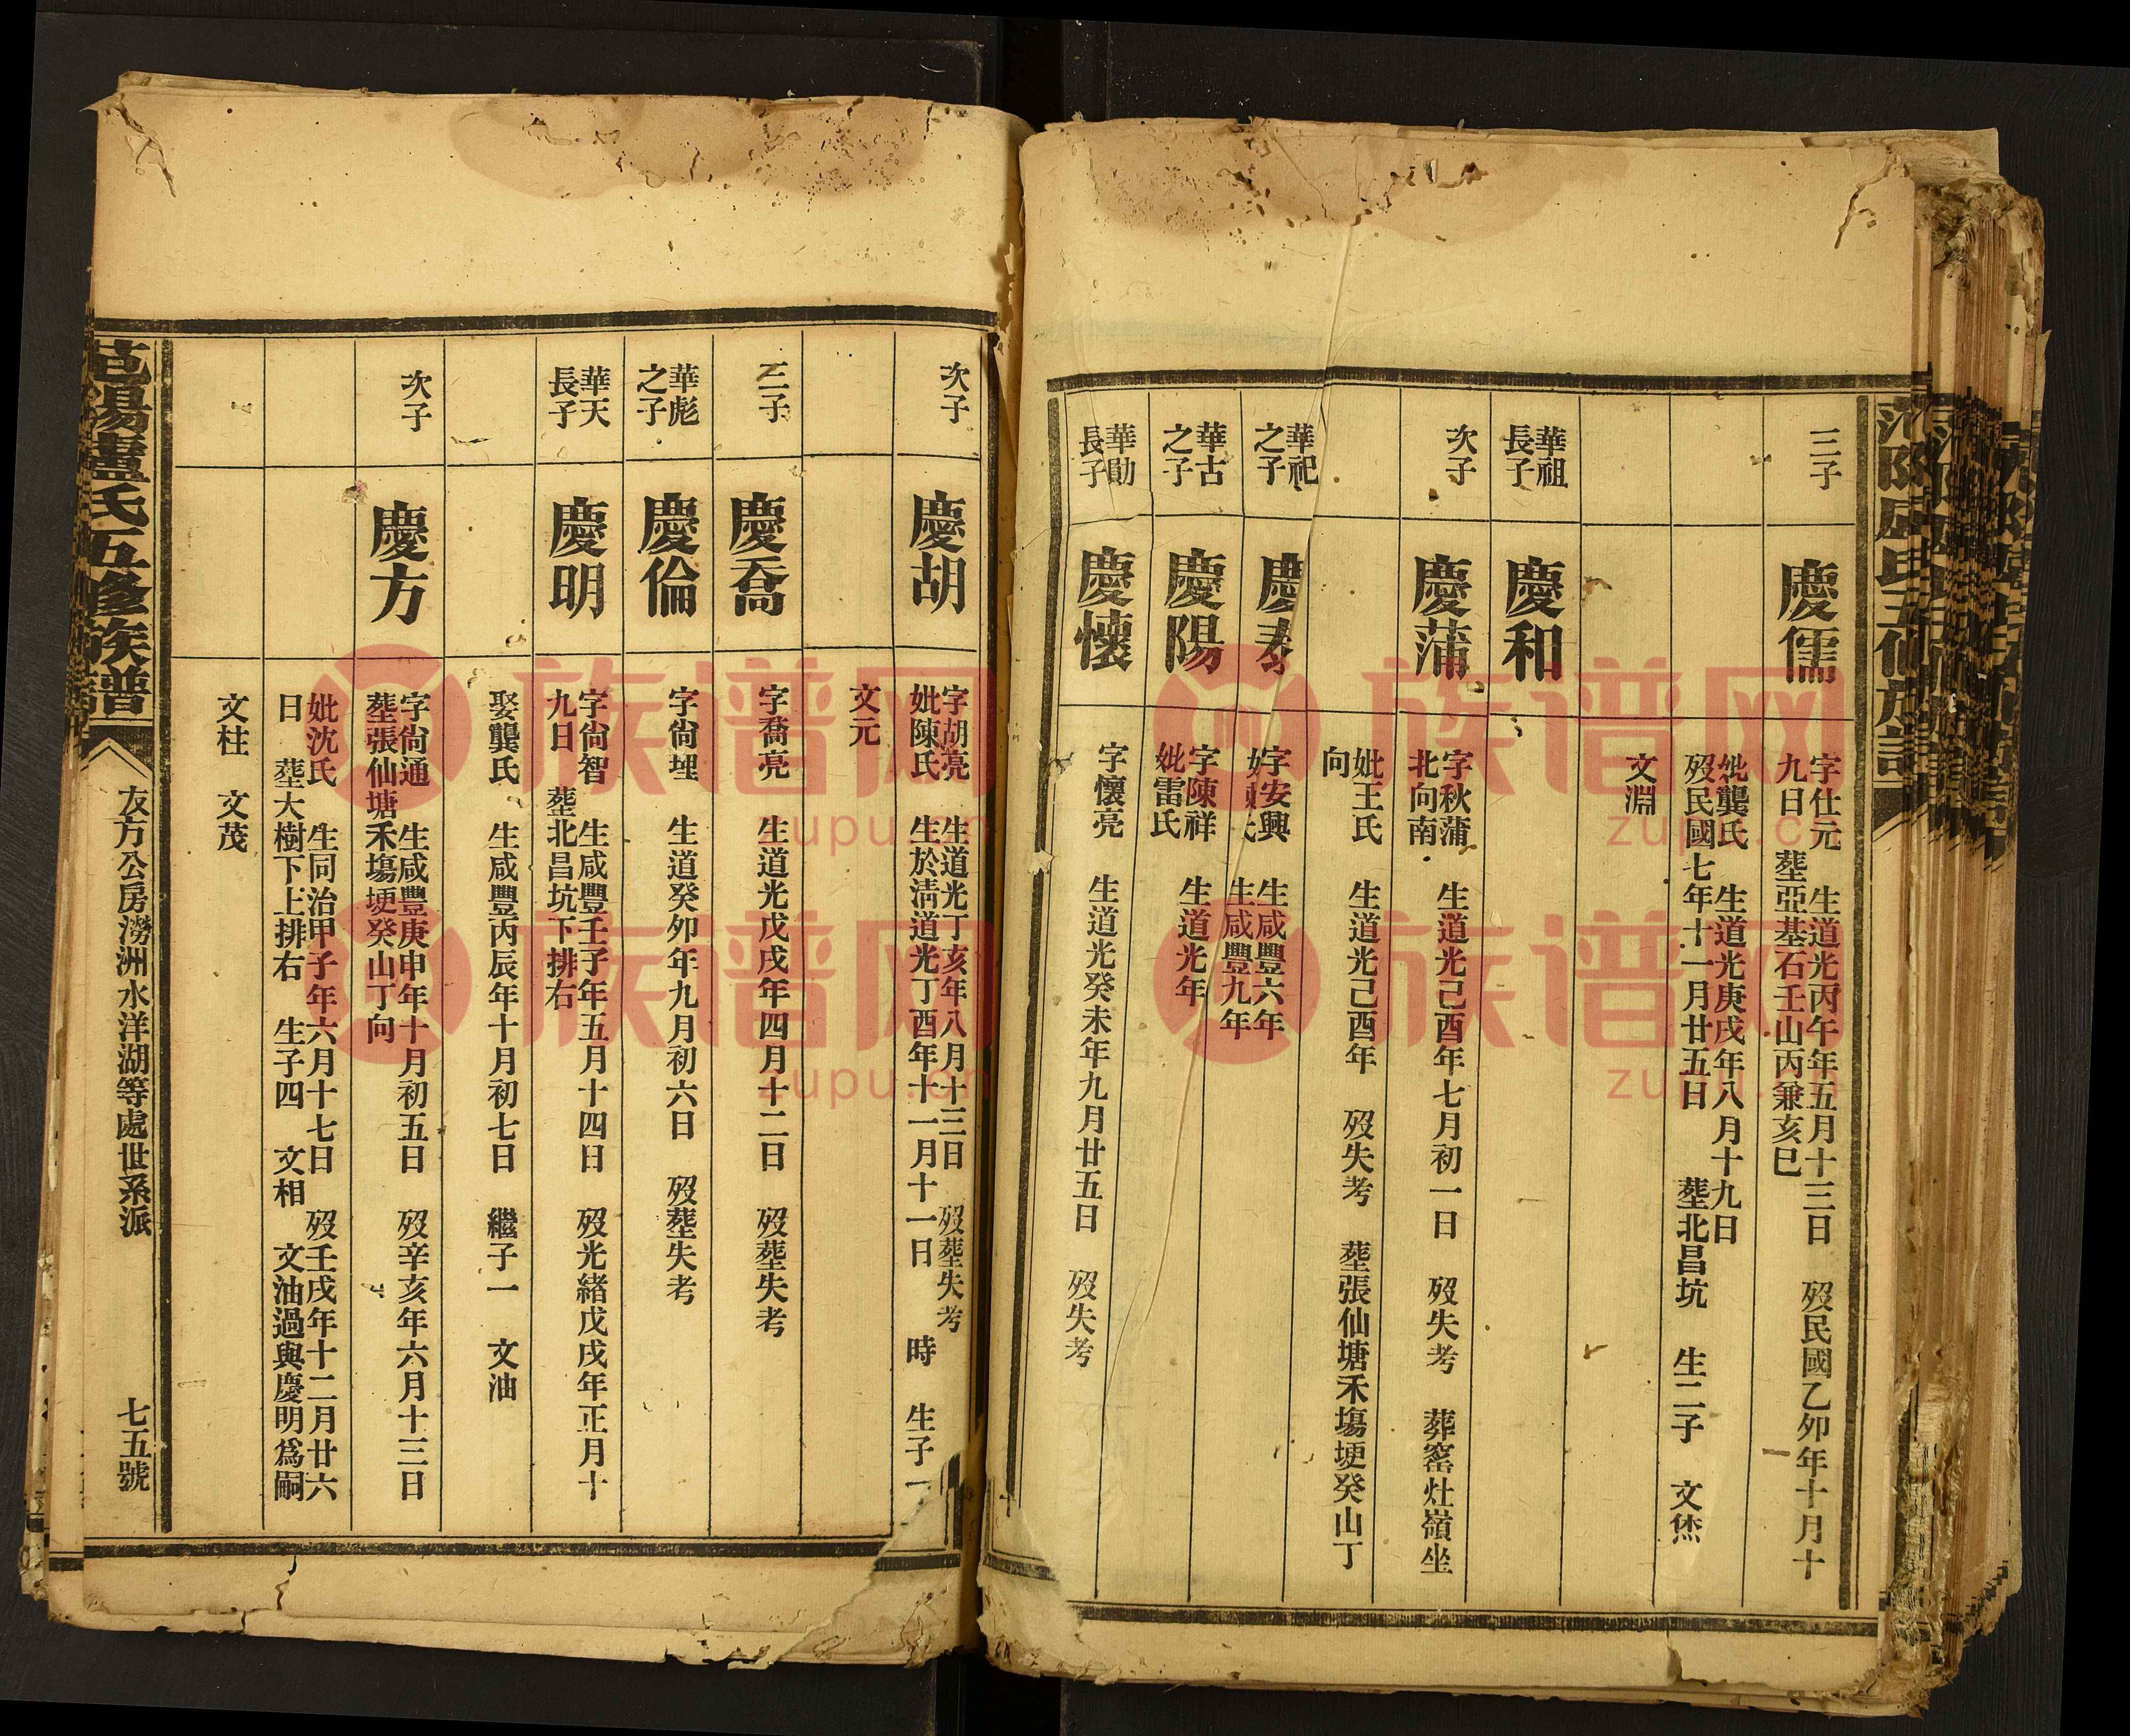 三子
慶儒
字仕元 生道光丙午年五月十三日 歿民國乙夘年十月十
九日 塟亞基石壬山丙兼亥巳
妣龔氏 生道光庚戌年八月十九日
歿民國七年十一月廿五日 塟北昌坑 生二子 文烋
文淵
華祖
長子
慶和
次子
慶蒲
字秋蒲 生道光己酉年七月初一日 歿失考 葬窰灶嶺坐
北向南
妣王氏 生道光己酉年 歿失考 塟張仙塘禾塲埂癸山丁
向
華祀
之子
慶泰
字安興 生咸豐六年
生咸豐九年
華古
之子
慶陽
字陳祥
妣雷氏 生道光年
華勛
長子
慶懷
字懷亮 生道光癸未年九月廿五日 歿失考
次子
慶胡
字胡亮 生道光丁亥年八月十三日 歿塟失考
妣陳氏 生於清道光丁酉年十一月十一日 時 生子一
文元
三子
慶喬
字喬亮 生道光戊戌年四月十二日 歿塟失考
華彪
之子
慶倫
字尙埋 生道癸夘年九月初六日 歿塟失考
華天
長子
慶明
字尙智 生咸豐壬子年五月十四日 歿光緒戊戌年正月十
九日 塟北昌坑下排右
娶龔氏 生咸豐丙辰年十月初七日 繼子一 文油
次子
慶方
字尙通 生咸豐庚申年十月初五日 歿辛亥年六月十三日
塟張仙塘禾塲埂癸山丁向
妣沈氏 生同治甲子年六月十七日 歿壬戌年十二月廿六
日 塟大樹下上排右 生子四 文相 文油過與慶明爲嗣
文柱 文茂
范陽盧氏五修族譜
友方公房澇洲水洋湖等處世系派
七五號
族谱网
zupu.cn
族谱网
zupu.cn
族谱网
zupu.cn
族谱网
zupu.cn